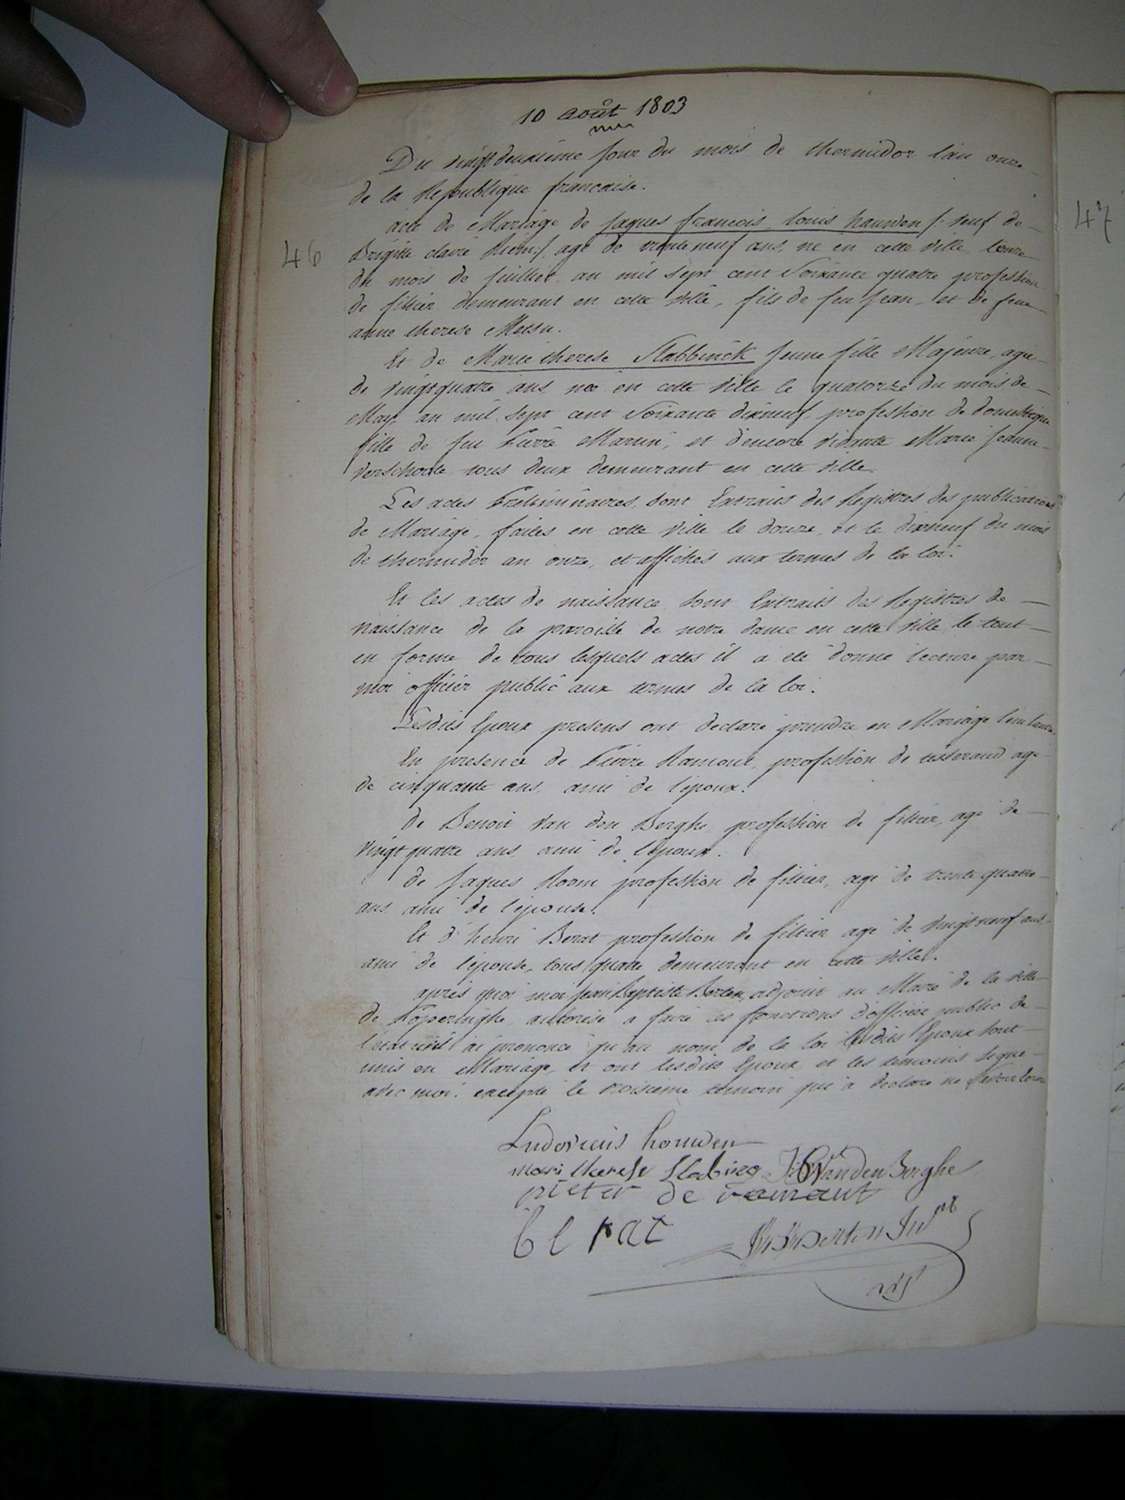 10 août 1803
Du vingtdeuxième jour du mois de thermidor l'an onze
de la Republique française.
46
47
acte de Mariage de jaques francois louis hauwen /: veuf de
Brigitte claire :/ agé de trente neuf ans, né en cette ville le onze
du mois de juillet au mil sept cent Soixante quatre profession
de filtier demeurant en cette ville, fils de feu jean, et de feue
anne therese
Et de Marie therese Slabbinck jeune fille Majeure, agée
de vingtquatre ans née en cette ville le quatorze du mois de
May au mil sept cent Soixante dixneuf, profession de domestique
fille de feu Pierre Martin, et d'encore vivante Marie jeanne
tous deux demeurant en cette ville.
Les actes Preliminaires, sont Extraits des Registres des publications
de Mariage, faites en cette ville le douze, et le dixneuf du mois
de thermidor an onze, et affichés aux termes de la loi.
Et les actes de naissance sont Extraits des Registres de
naissance de la paroisse de notre dame en cette ville le tout
en forme de tous lesquels actes il a été donné lecture par
moi officier public aux termes de la loi.
Lesdits Epoux presens ont declaré prendre en Mariage l'un l'autre
En presence de Pierre Ramout, profession de tisserand agé
de cinquante ans ami de l'époux.
de Benoit Van den Berghe profession de filtier, agé de
vingt quatre ans, ami de l'époux.
de jaques Room profession de filtier, agé de trente quatre
ans ami de l'épouse.
Et d'henri Berat profession de filtier agé de vingt neuf ans
ami de l'épouse, tous quatre demeurant en cette ville.
après quoi moi jean Baptiste Berten, adjoint au Maire de la ville
de Poperinghe, autorisé a faire les fonctions d'officier public de
l'état civil ai prononcé qu'au nom de la loi lesdits Epoux sont
unis en Mariage, et ont lesdits Epoux et les temoins signé
avec moi. excepté le troisieme temoin qui a declaré ne savoir écrire
Ludovicus houwen
mari therese Slabinck Van den Berghe
pieter de ramaut
berat
Berten